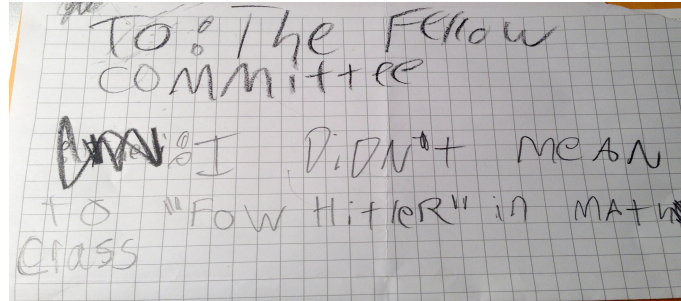 TO: The Fellow
committee
: I DiDN't MeAN
TO "Fow HitleR" in MAth
Class